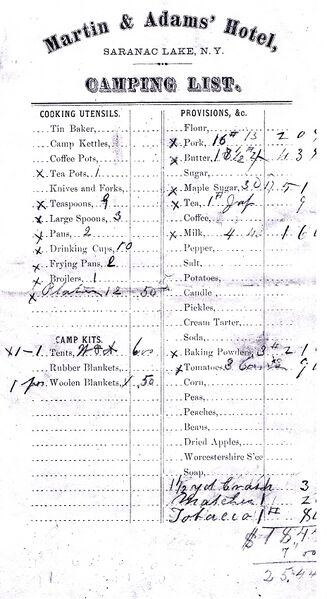 Martin & Adams' Hotel,
SARANAC LAKE, N.Y.
CAMPING LIST.
COOKING UTENSILS.
Tin Baker,
Camp Kettles,
Coffee Pots,
x Tea Pots, 1
Knives and Forks,
x Teaspoons, 9
x Large Spoons, 3
x Pans, 2
x Drinking Cups, 10
x Frying Pans, 2
x Broilers, 1
x Plates 12 50
CAMP KITS.
x1-1 Tents, 6
Rubber Blankets,
1 pr. Woolen Blankets, x 50
PROVISIONS, &c.
Flour,
x Pork, 16 # 13 2 0
x Butter, 4 3
Sugar,
x Maple Sugar, 3 17 5 1
x Tea, 1 # Jap 9
Coffee,
x Milk, 4 4 1 6
Pepper,
Salt,
Potatoes,
Candle
Pickles,
Cream Tarter,
Soda,
x Baking Powders, 3 # 2 1
x Tomatoes, 3 Cans 9
Corn,
Peas,
Peaches,
Beans,
Dried Apples,
Worcestershire S'ce
Soap,
1½ yd Crash 3
Matches 1 2
Tobacco 1 # 8
$ 184
7 00
25.44